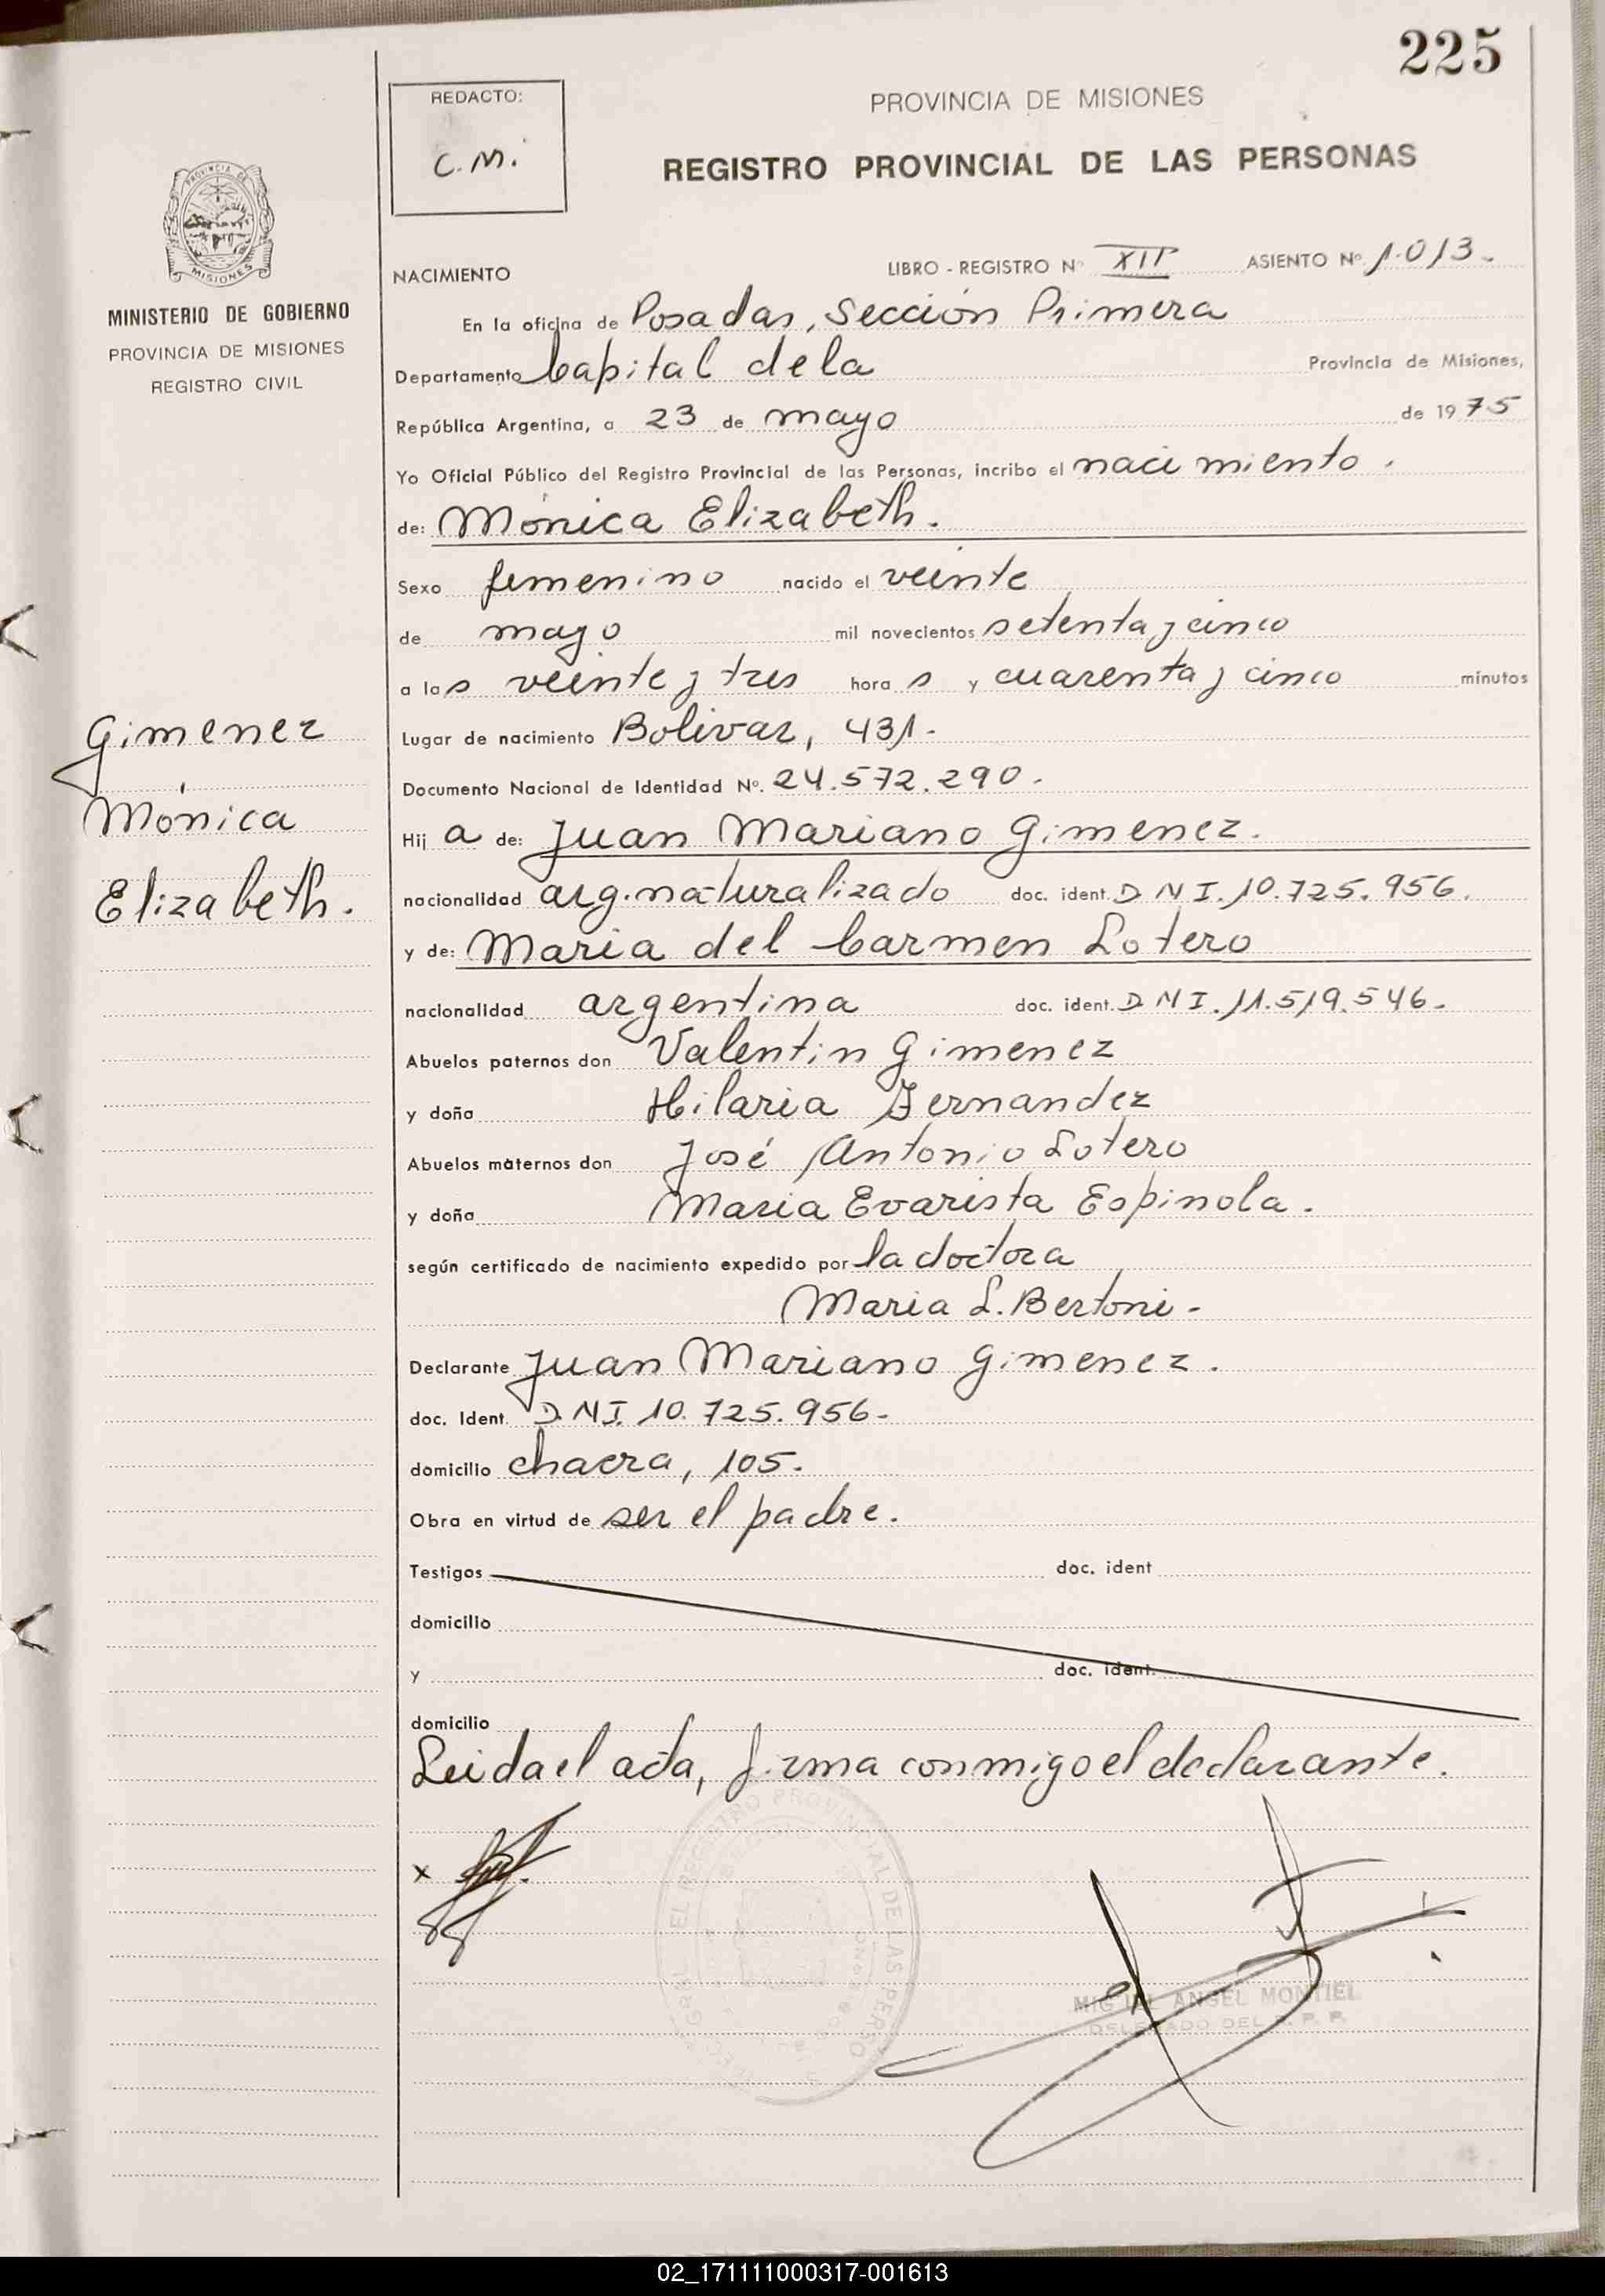 225
REDACTO:
C.M.
PROVINCIA DE MISIONES
REGISTRO PROVINCIAL DE LAS PERSONAS
PROVINCIA DE
MISIONES
MINISTERIO DE GOBIERNO
PROVINCIA DE MISIONES
REGISTRO CIVIL
NACIMIENTO LIBRO - REGISTRO Nº XII ASIENTO Nº 1.013.
En la oficina de Posadas, Sección Primera
Departamento Capital de la Provincia de Misiones,
República Argentina, a 23 de mayo de 1975
Yo Oficial Público del Registro Provincial de las Personas, incribo el nacimiento.
de: Mónica Elizabeth.
Sexo femenino nacido el veinte
de mayo mil novecientos setenta y cinco
a las veinte y tres horas y cuarenta y cinco minutos
Lugar de nacimiento Bolivar, 431.
Documento Nacional de Identidad Nº. 24.572.290.
Hij a de: Juan Mariano Gimenez.
nacionalidad arg. naturalizado doc. ident. D N I. 10.725.956.
y de: Maria del Carmen Lotero
nacionalidad argentina doc. ident. D N I. 11.519.546.
Abuelos paternos don Valentin Gimenez
y doña Hilaria Fernandez
Abuelos maternos don José Antonio Lotero
y doña Maria Evarista Espinola.
según certificado de nacimiento expedido por la doctora
Maria L. Bertoni.
Declarante Juan Mariano Gimenez.
doc. Ident. D.N.I. 10.725.956.
domicilio chacra, 105.
Obra en virtud de ser el padre.
Testigos doc. ident
domicilio
y doc. ident.
domicilio
Leida el acta, firma conmigo el declarante.
Gimenez
Mónica
Elizabeth.
x
REGISTRO PROVINCIAL DE LAS PERSO
MIGUEL ANGEL MONTIEL
DELEGADO DEL R. P. P.
02_171111000317-001613